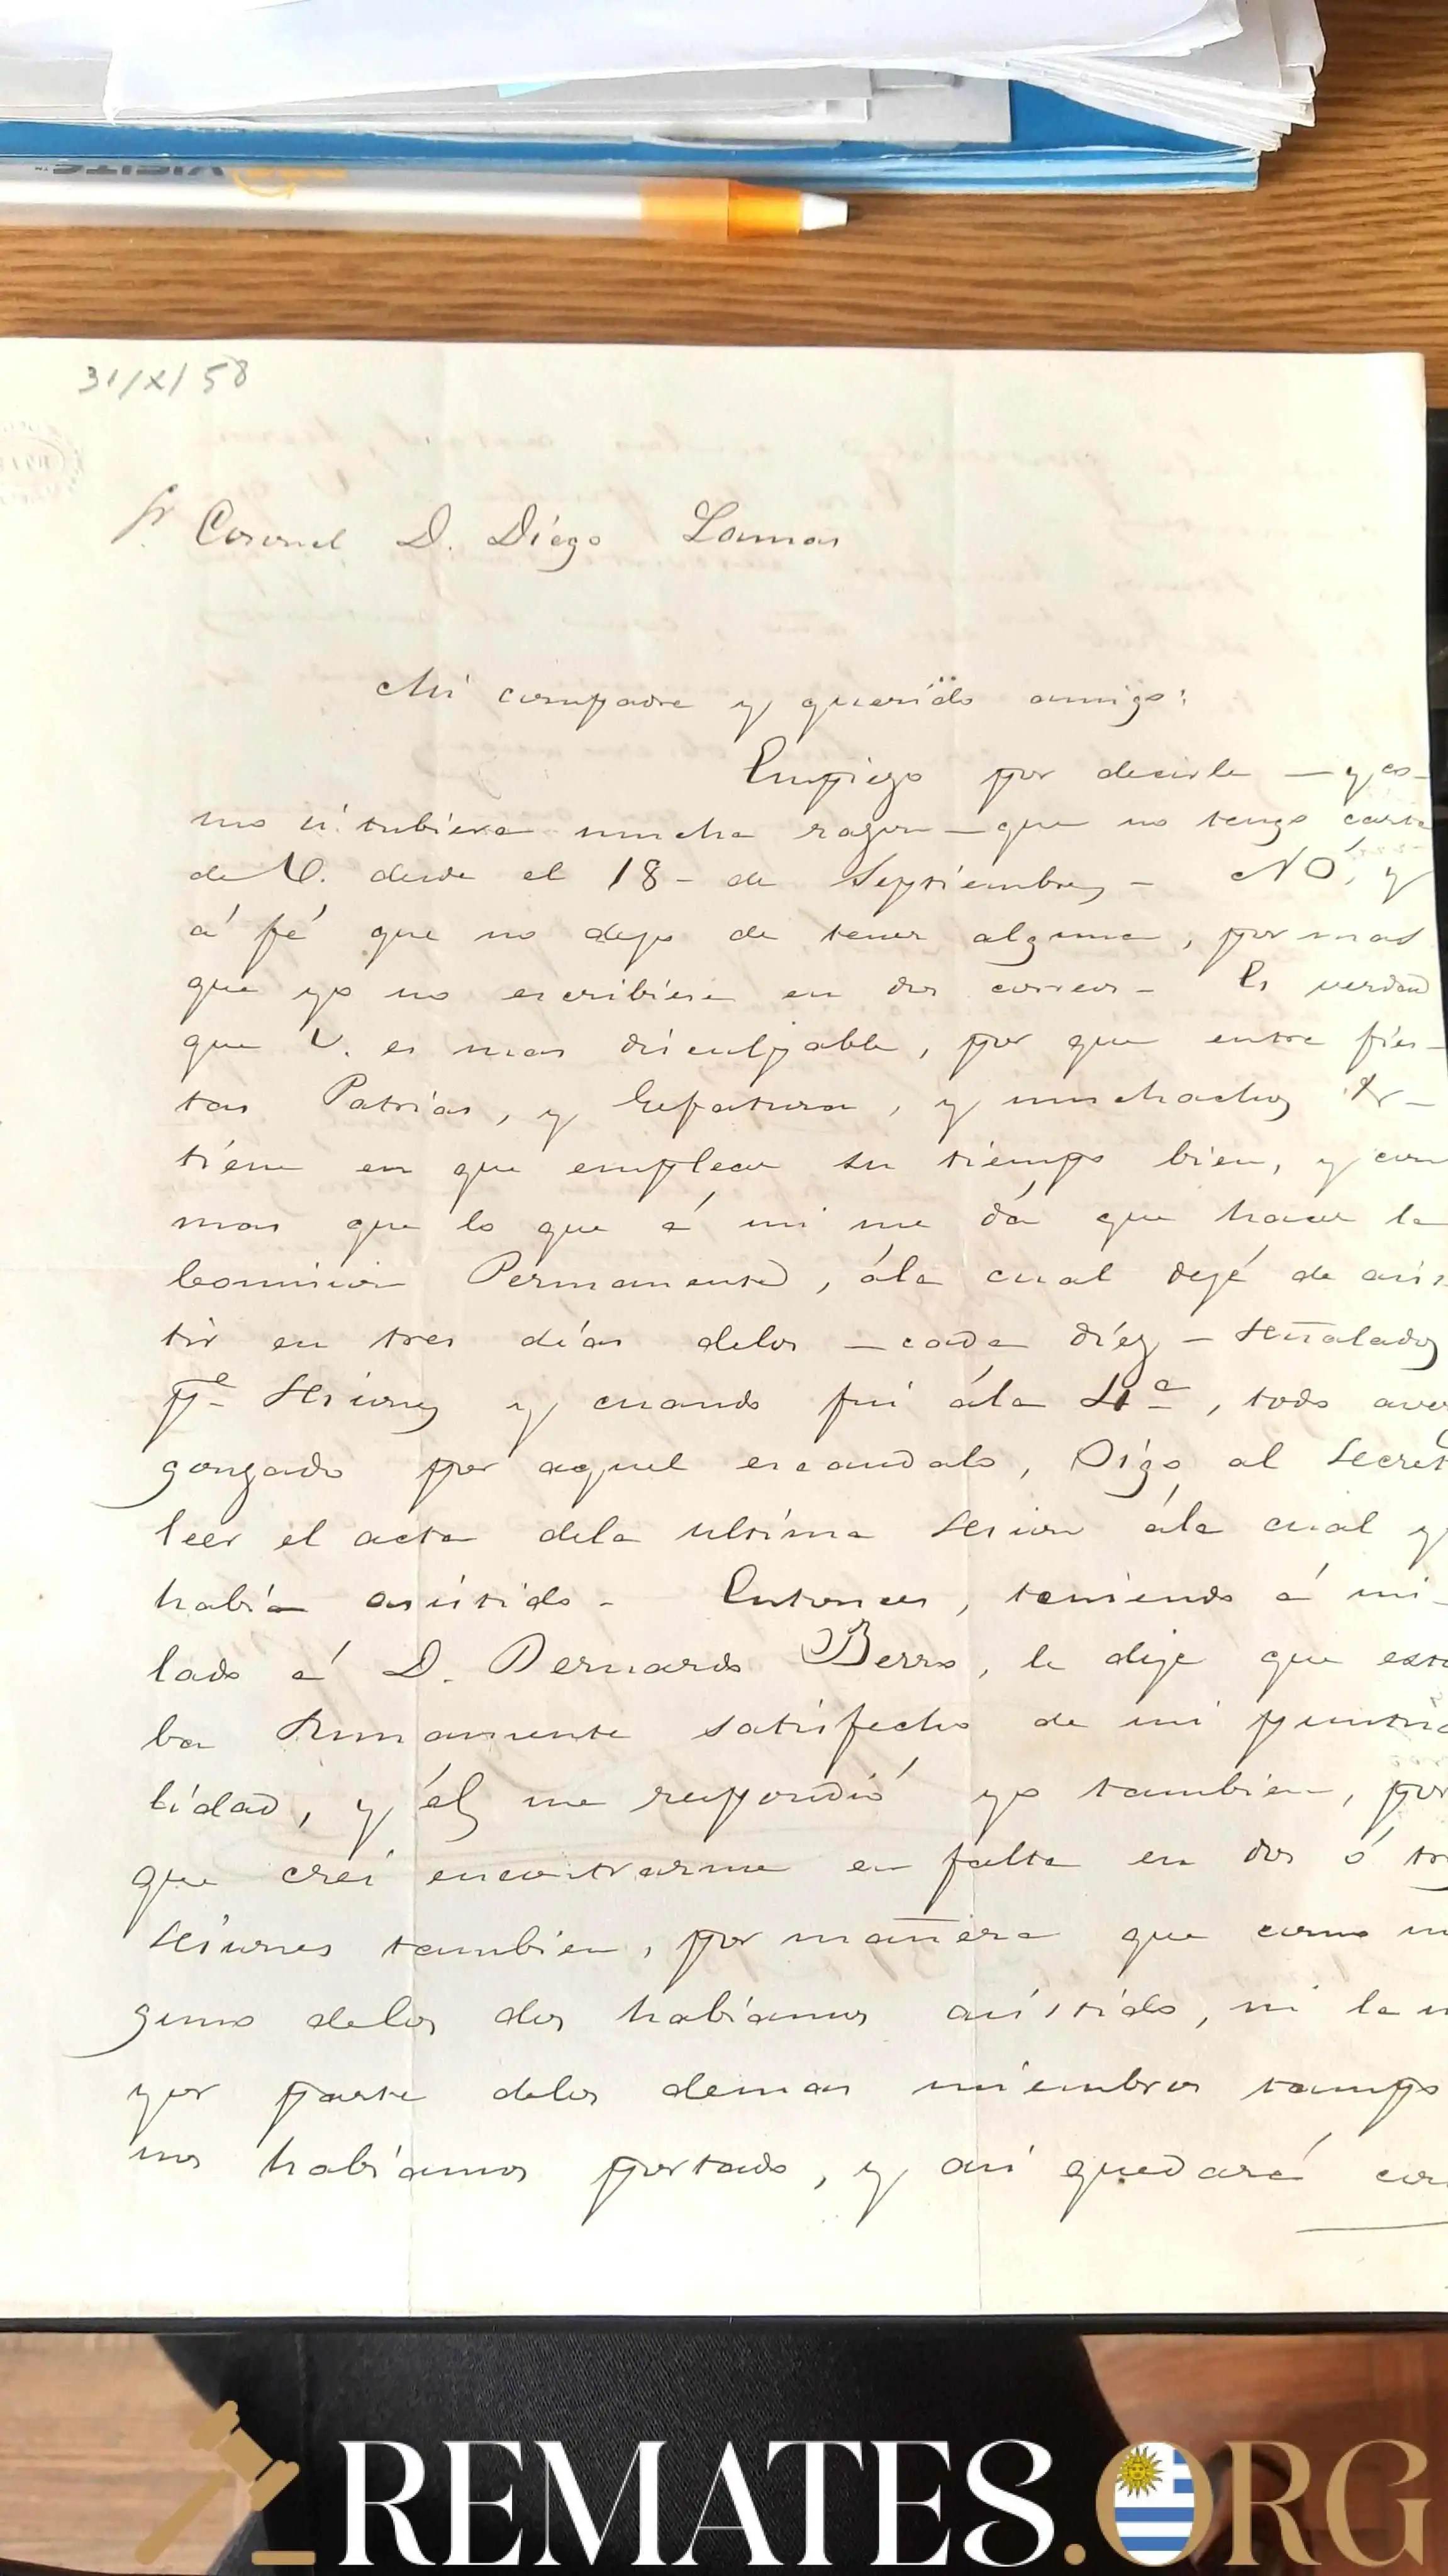 VISITE™
31/X/58
Sr. Coronel D. Diégo Lamas
Mi compadre y querido amigo:
Empiezo por decirle — y co-
mo si tubiera mucha razon — que no tengo carta
de V. desde el 18 - de Septiembre, - NO, y
á fé que no dejo de tener alguna, por mas
que yo no escribiese en dos correos - Es verdad
que V. es mas disculpable, por que entre fies-
tas Patrias, y Gefatura, y muchachos
tiene en que emplear su tiempo bien, y con
mas que lo que á mi me dá que hacer la
Comision Permanente, ála cual dejé de asis
tir en tres días delos — cada díez — señalados
pa. sesiones y cuando fui ála 4a, todo aver
gonzado por aquel escandalo, Oigo al Secret
leer el acta dela ultíma sesion ála cual y
había asistido - Entonces, teniendo á mi
lado á D. Bernardo Berro, le dije que esta
ba sumamente satisfecho de mi puntua
lidad, y él me respondió yo tambien, por
que creí encontrarme en falta en dos ó tres
sesiones tambien, por manera que como ni
guno delos dos habíamos asistido, ni la m
yor parte delos demas miembros tampo
nos habíamos portado, y asi quedará con
REMATES.ORG